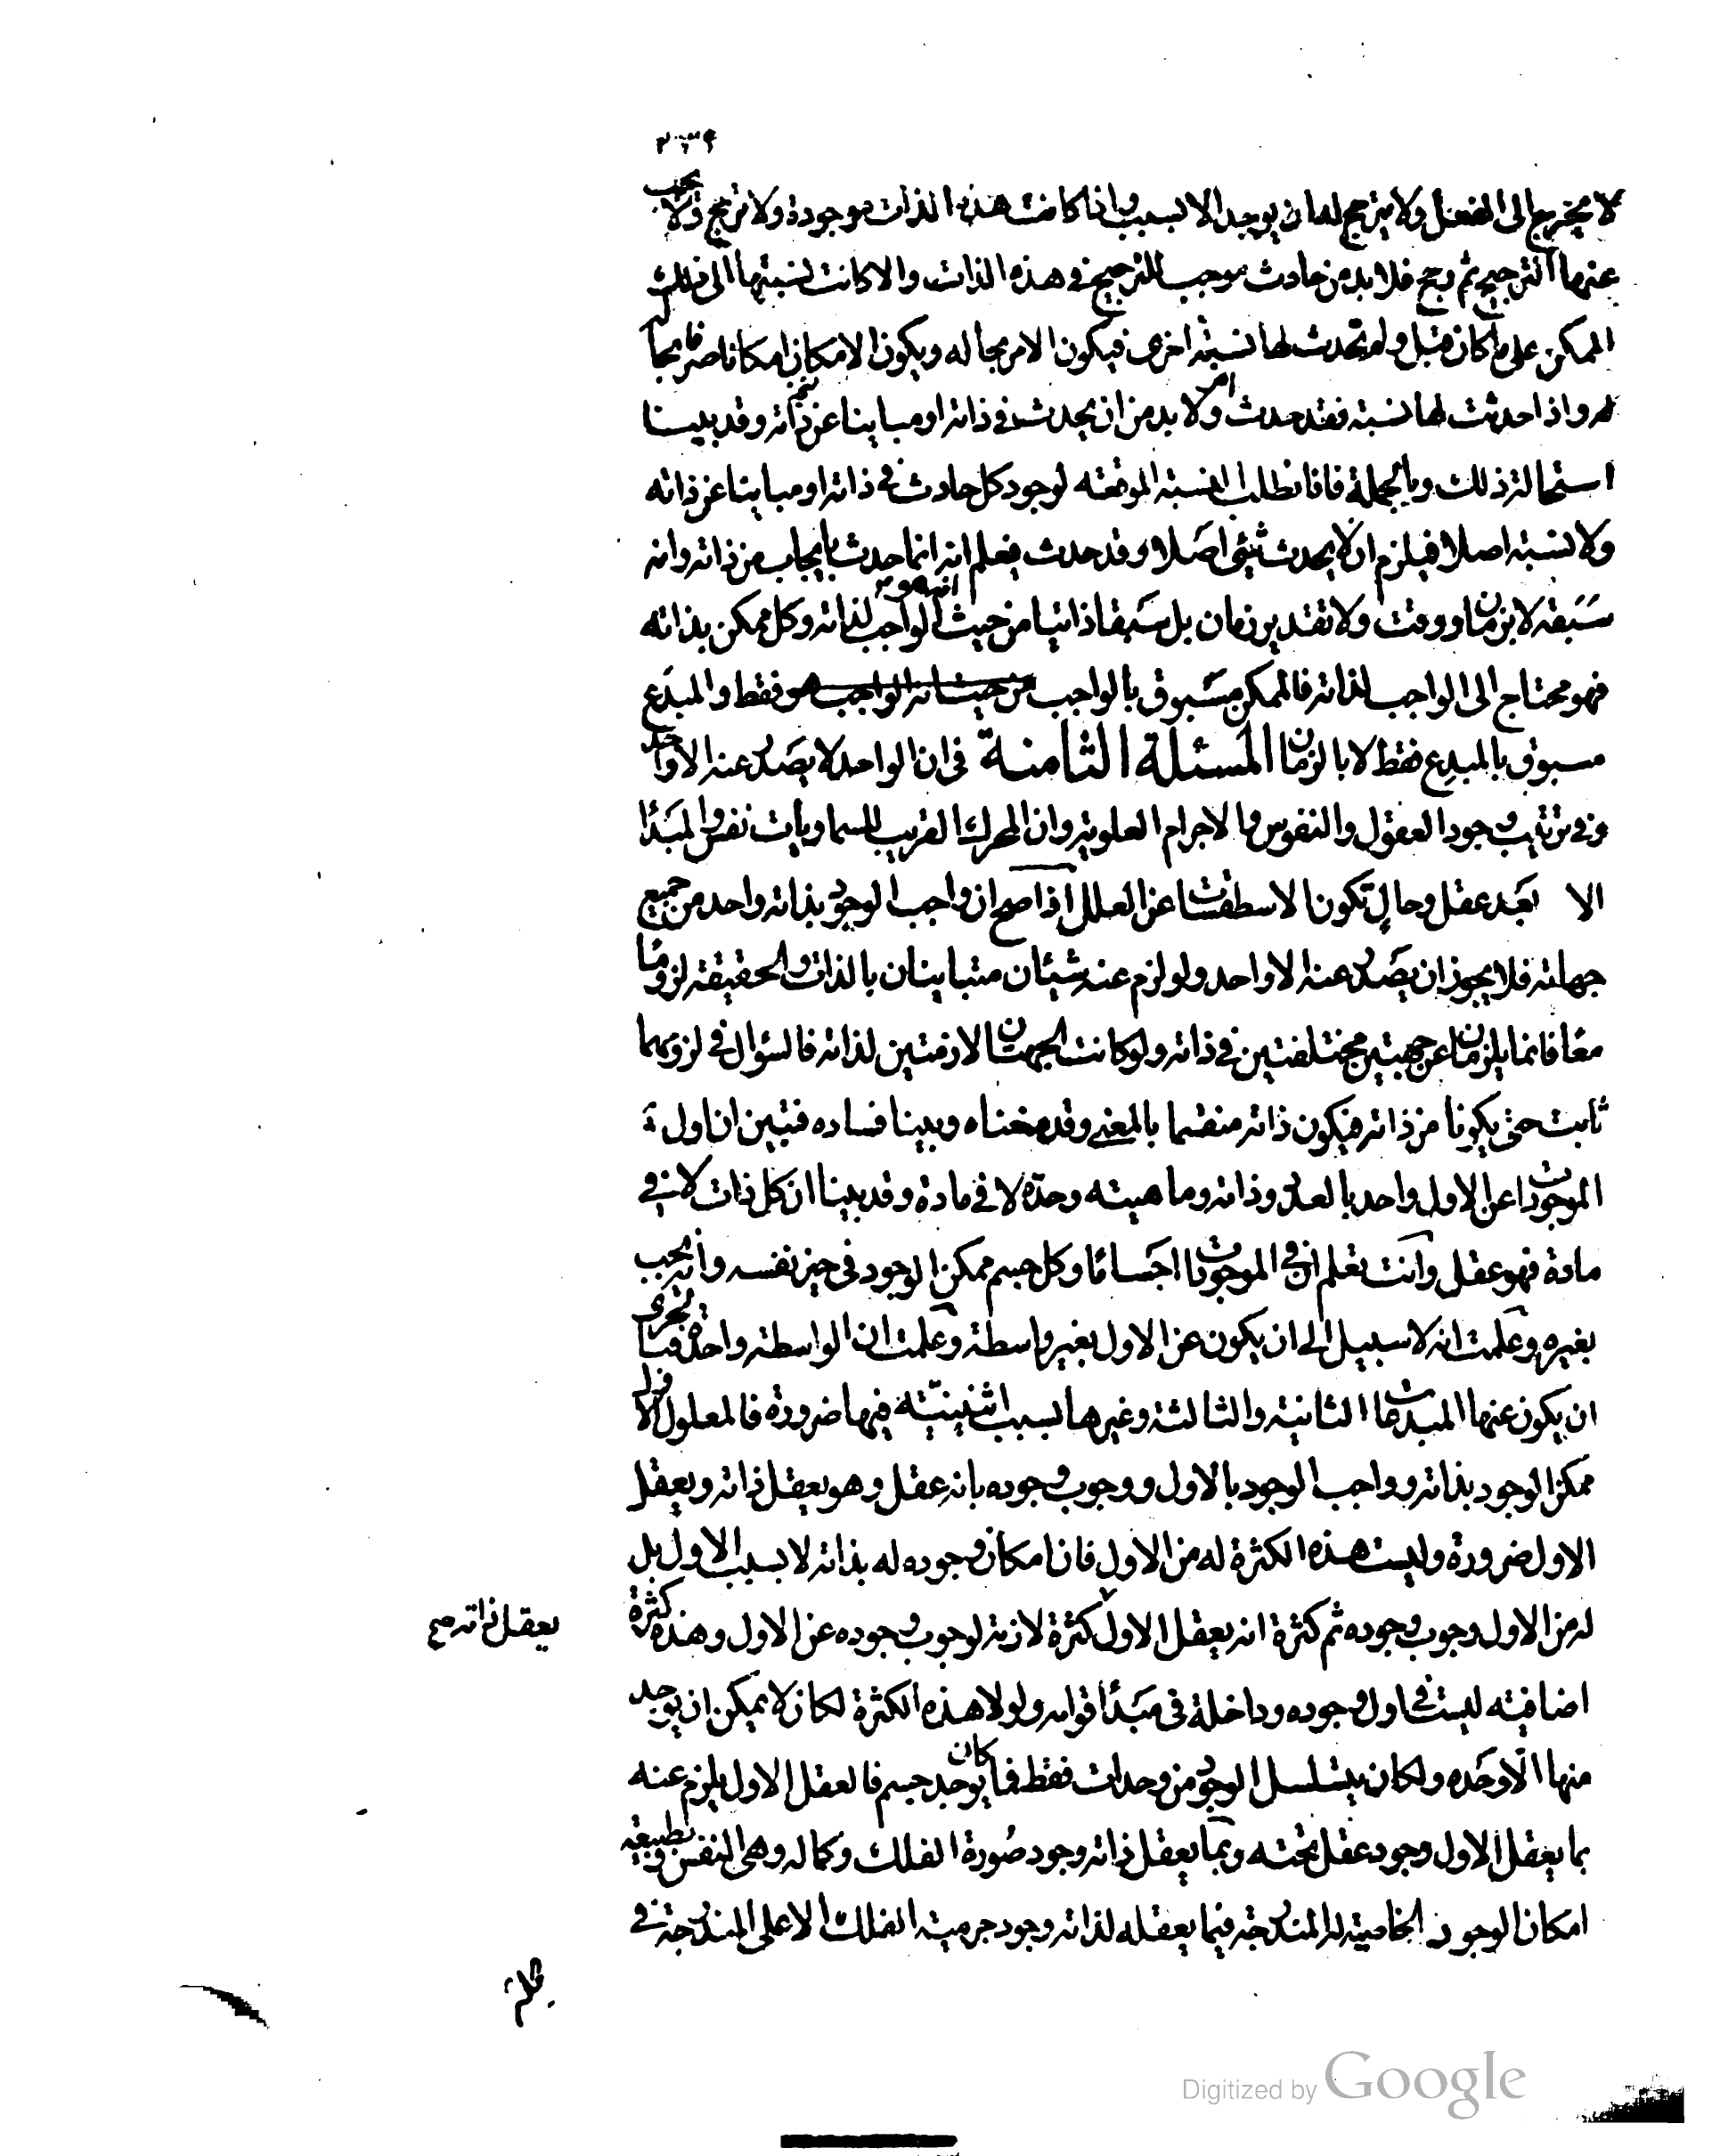 ٢٣٩
لا يخرج الى الفعل ولا يترجح له ان يوجد الا بسبب واذا كانت هذه الذات موجودة ولا ترجح ولا يجب
عنها الترجيح ثم رجح فلا بد من حادث موجب للترجيح في هذه الذات والا كانت نسبتها الى ذلك
الممكن على ما كان قبل ولم تحدث لها نسبة اخرى فيكون الامر بحاله ويكون الامكان امكانا صرفا بحاله
واذا حدثت لها نسبة فقد حدث امر ولا بد من ان يحدث في ذاته او مباينا عن ذاته وقد بينا
استحالة ذلك وبالجملة فانا نطلب النسبة الموقعة لوجود كل حادث في ذاته او مباينا عن ذاته
ولا نسبة اصلا فيلزم ان لا يحدث شئ اصلا وقد حدث فعلم انه انما حدث بايجاب من ذاته وانه
سبقه لا بزمان ووقت ولا تقدير زمان بل سبقا ذاتيا من حيث انه هو الواجب لذاته وكل ممكن بذاته
فهو محتاج الى الواجب لذاته فالممكن مسبوق بالواجب من حيث انه الواجب هو فقط والمبدع
مسبوق بالمبدع فقط لا بالزمان المسئلة الثامنة في ان الواحد لا يصدر عنه الا واحد
وفي ترتيب وجود العقول والنفوس والاجرام العلوية وان المحرك القريب للسماويات نفس والمبدأ
الا بعد عقل وحال تكون الاسطقسات عن العلل اذا صح ان واجب الوجود بذاته واحد من جميع
جهاته فلا يجوز ان يصدر عنه الا واحد ولو لزم عنه شيئان متباينان بالذات والحقيقة لزوما
معا فانما يلزمان عن جهتين مختلفتين في ذاته ولو كانت الجهتان لازمتين لذاته فالسؤال في لزومهما
ثابت حتى يكونا من ذاته فيكون ذاته منقسما بالمعنى وقد منعناه وبينا فساده فتبين ان اول
الموجودات عن الاول واحد بالعدد وذاته وماهيته وحدة لا في مادة وقد بينا ان كل ذات لا في
مادة فهو عقل وانت تعلم ان في الموجودات اجساما وكل جسم ممكن الوجود في حيز نفسه وانه يجب
بغيره وعلمت انه لا سبيل الى ان يكون عن الاول بغير واسطة وعلمت ان الواسطة واحدة فبالحرى
ان يكون عنها المبدعات الثانية والثالثة وغيرها بسبب اثنينية فيها ضرورة فالمعلول الاول
ممكن الوجود بذاته وواجب الوجود بالاول ووجوب وجوده بانه عقل وهو يعقل ذاته ويعقل
الاول ضرورة وليست هذه الكثرة له من الاول فان امكان وجوده له بذاته لا بسبب الاول بل
له من الاول وجوب وجوده ثم كثرة انه يعقل الاول كثرة لازمة لوجوب وجوده عن الاول وهذه كثرة
يعقل ذاته صح
اضافية ليست في اول وجوده وداخلة في مبدأ قوامه ولولا هذه الكثرة لكان لا يمكن ان يوجد
منها الا وحده ولكان يتسلسل الوجود من وحدات فقط فما كان يوجد جسم فالعقل الاول يلزم عنه
بما يعقل الاول وجود عقل تحته وبما يعقل ذاته وجود صورة الفلك وكماله وهي النفس وبطبيعة
امكان الوجود الخاصية له المندرجة فيما يعقله لذاته وجود جرمية الفلك الاعلى المندرجة في
Digitized by Google